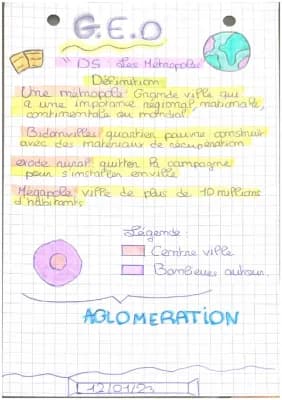 G.E.O
DS Les Métropoles
Définition
Une métropole: Grande ville qui
a une importance régional, nationale,
continentale ou mondial
Bidonvilles: quartier pauvre construit
avec des matériaux de récupération
exode rural: quitter la campagne
pour s'installer en ville
Mégapole: ville de plus de 10 millions
d'habitants
Légende:
Centre ville
Banlieues autour.
AGLOMERATION
12/01/23